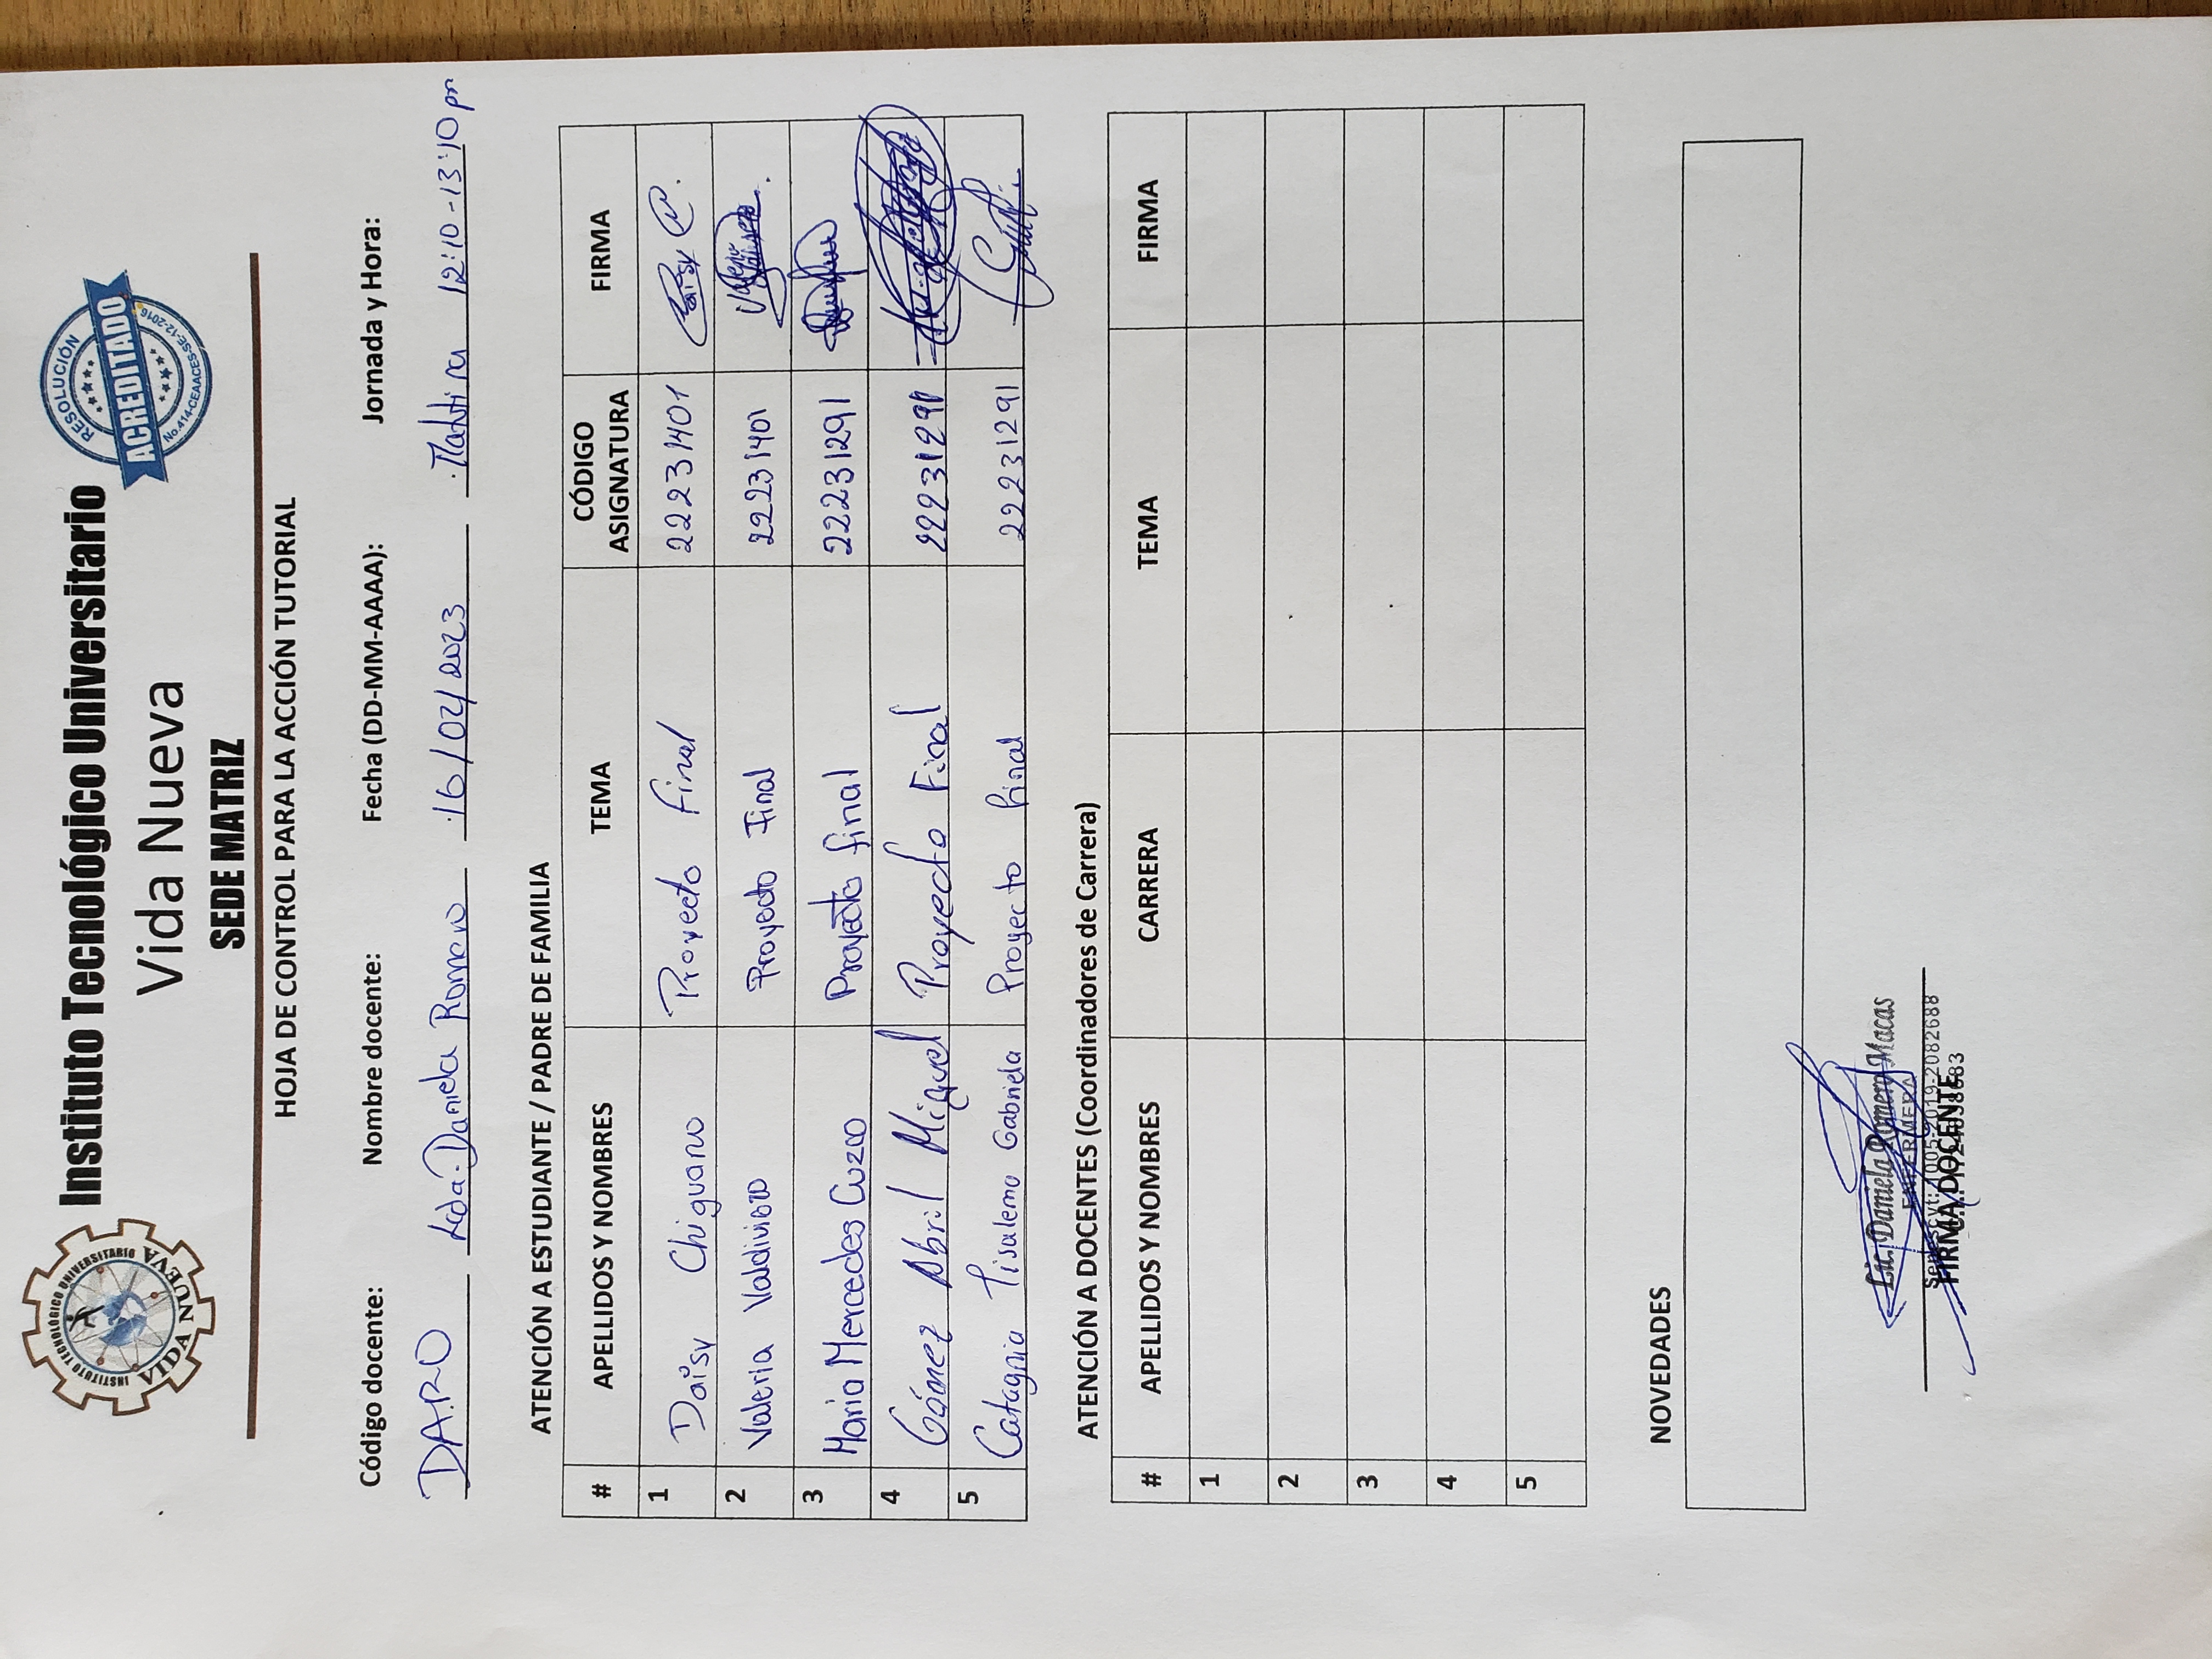 INSTITUTO TECNOLÓGICO UNIVERSITARIO
VIDA NUEVA
Instituto Tecnológico Universitario
Vida Nueva
SEDE MATRIZ
RESOLUCIÓN
ACREDITADO
No.414-CEAACES-SE-12-2016
HOJA DE CONTROL PARA LA ACCIÓN TUTORIAL
Código docente: Nombre docente: Fecha (DD-MM-AAAA): Jornada y Hora:
DA.RO Lcda. Daniela Romero 16/02/2023 Matutina 12:10-13:10 pm
ATENCIÓN A ESTUDIANTE / PADRE DE FAMILIA
# APELLIDOS Y NOMBRES TEMA CÓDIGO ASIGNATURA FIRMA
1 Daisy Chiguano Proyecto final 22231401 Daisy
2 Valeria Valdiviozo Proyecto Final 22231401 Valeria
3 Maria Mercedes Cuzco Proyecto final 22231291
4 Gómez Abril Miguel Proyecto Final 22231291
5 Catagnia Tisalema Gabriela Proyecto final 22231291
ATENCIÓN A DOCENTES (Coordinadores de Carrera)
# APELLIDOS Y NOMBRES CARRERA TEMA FIRMA
1
2
3
4
5
NOVEDADES
Lic. Daniela Romero Macas
ENFERMERA
Senescyt: 1005-2019-2082688
FIRMA DOCENTE